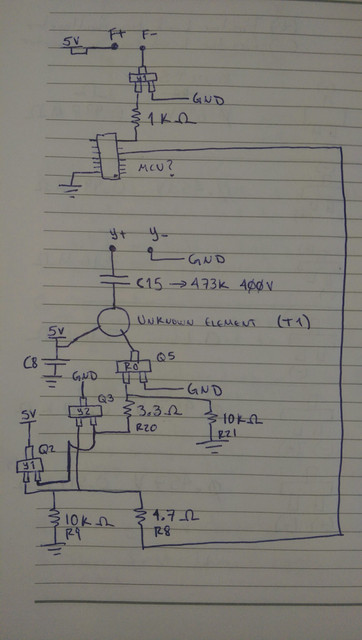 5V F+ F-
Y1
GND
1KΩ
MCU?
Y+ Y-
GND
C15 → 473K 400V
UNKNOWN ELEMENT (T1)
5V
C8
R0 Q5
GND
GND
Y2 Q3
3.3Ω
R20
10KΩ
R21
5V
Q2
Y1
10KΩ
R9
4.7Ω
R8